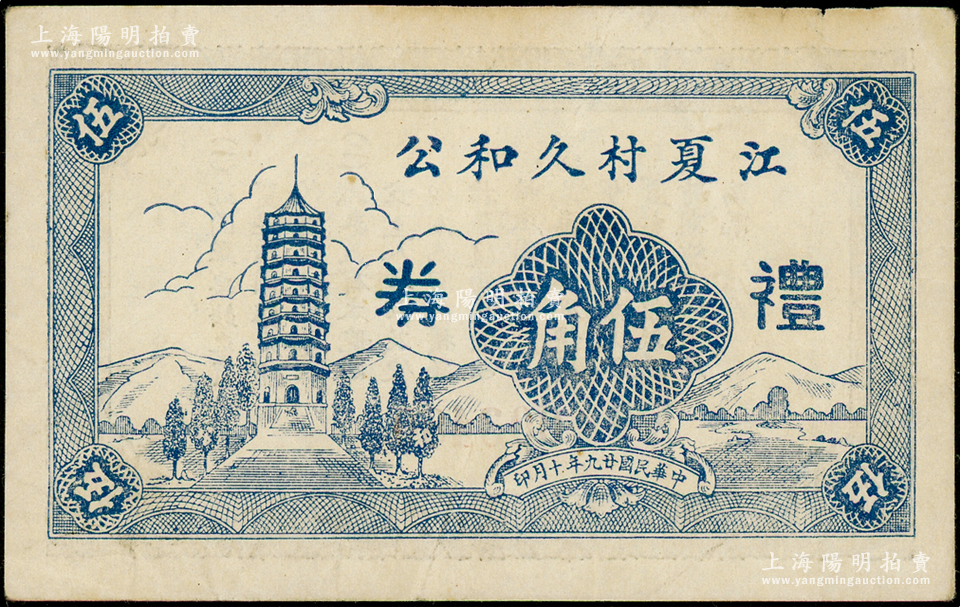 上海陽明拍賣
www.yangmingauction.com
伍
伍
江夏村久和公
禮
券
伍角
上海陽明拍賣
www.yangmingauction.com
中華民國廿九年十月印
伍
伍
上海陽明拍賣
www.yangmingauction.com